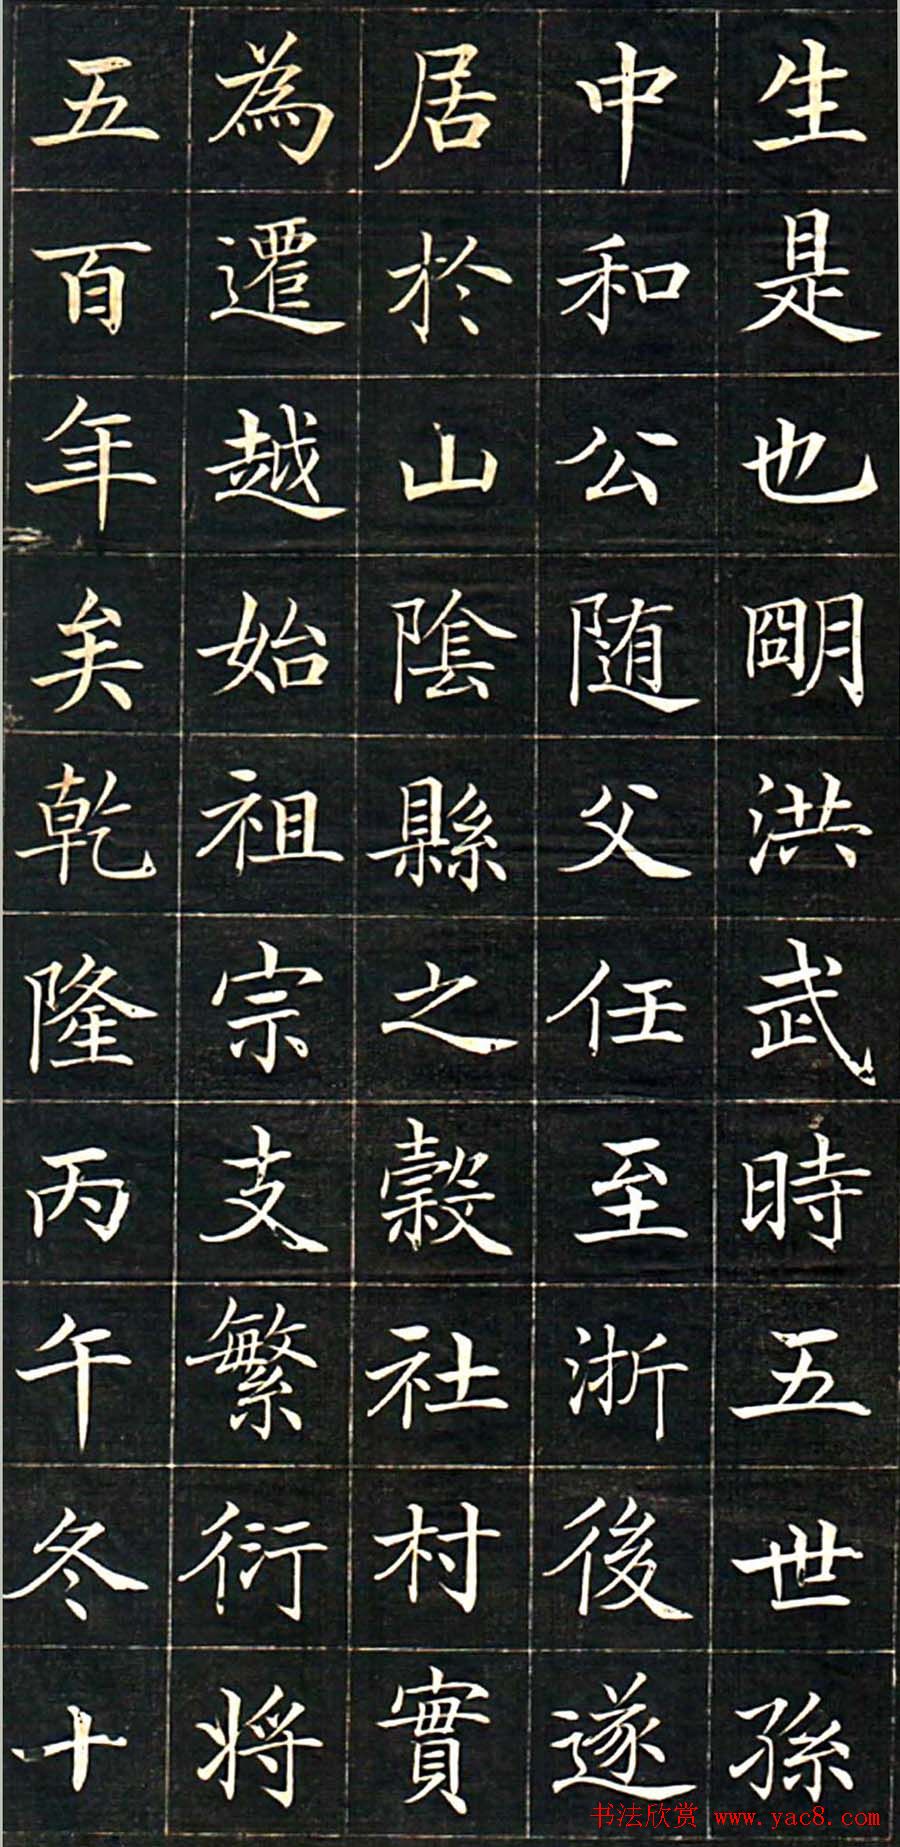 生是也明洪武時五世孫
中和公随父任至浙後遂
居於山陰縣之穀社村實
為遷越始祖宗支繁衍将
五百年矣乾隆丙午冬十
书法欣赏 www.yac8.com